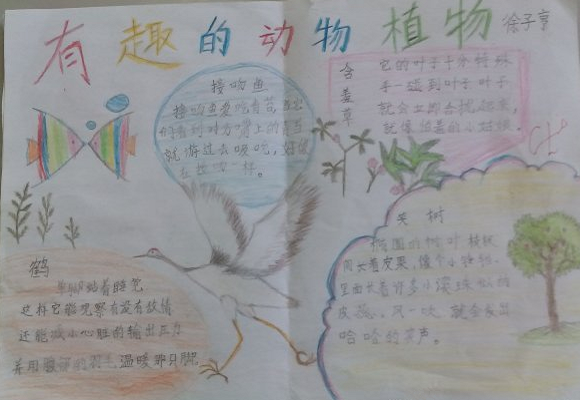 有趣的动物植物
徐子亨
接吻鱼
接吻鱼爱吃青苔 当它
们看到对方身上的青苔
就游过去吸吮，好像
在接吻一样。
含羞草
它的叶子十分特殊
手一碰到叶子叶子
就会立即合拢起来，
就像害羞的小姑娘。
鹤
单脚站着睡觉
这样它能观察有没有敌情
还能减小心脏的输出压力
并用腹部的羽毛温暖那只脚
笑树
椭圆的树叶
间长着皮果，像个小铃铛，
里面长着许多小滚珠似的
皮蕊，风一吹，就会发出
哈哈的笑声。